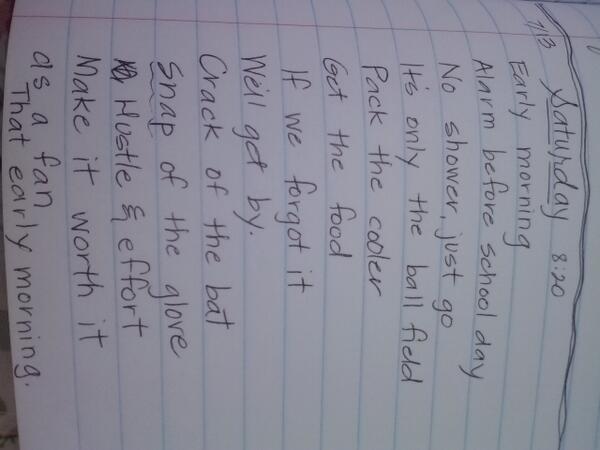 7/13 Saturday 8:20
Early morning
Alarm before school day
No shower, just go
It's only the ball field
Pack the cooler
Get the food
If we forgot it
We'll get by.
Crack of the bat
Snap of the glove
Hustle & effort
Make it worth it
as a fan
That early morning.